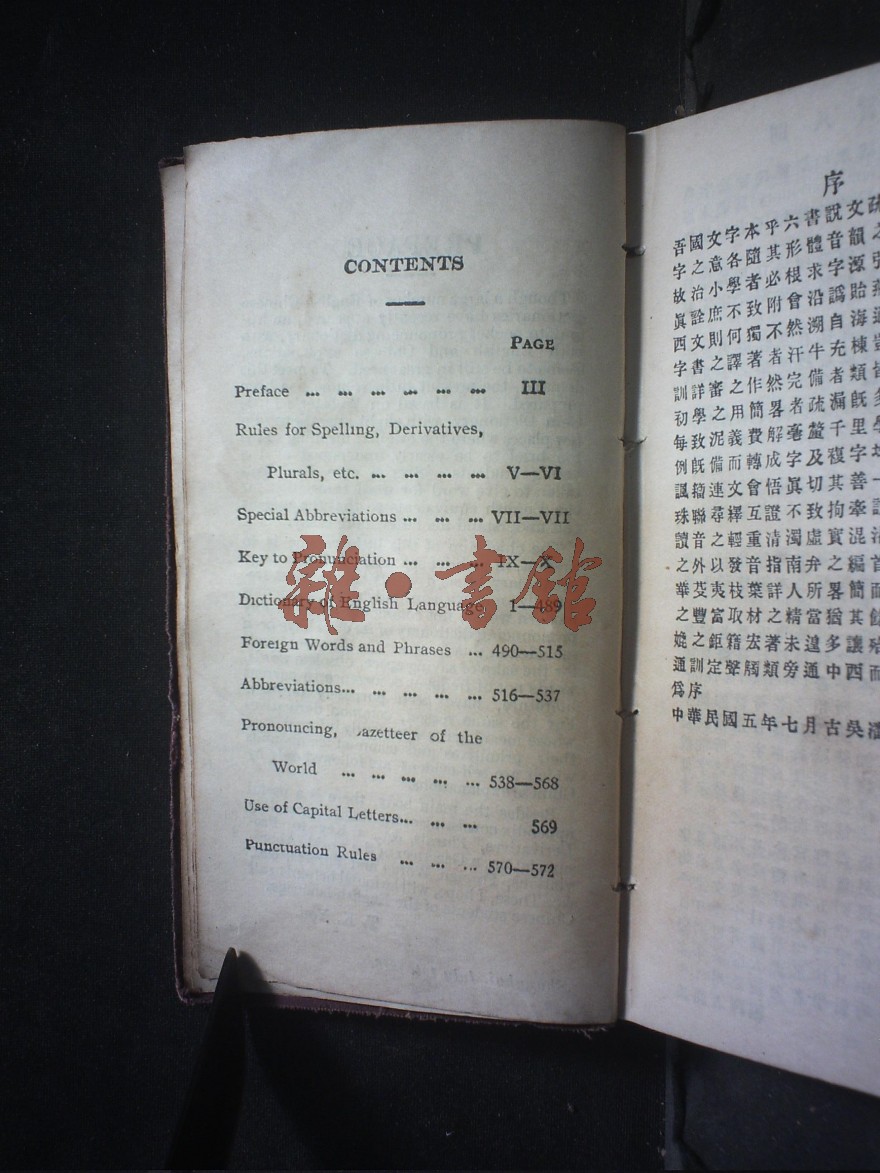 CONTENTS
PAGE
Preface ... ... ... ... ... ... III
Rules for Spelling, Derivatives,
Plurals, etc. ... ... ... ... V—VI
Special Abbreviations ... ... ... VII—VII
Key to Pronunciation ... ... ... IX—X
Dictionary of English Language 1—489
Foreign Words and Phrases ... 490—515
Abbreviations... ... ... ... ... 516—537
Pronouncing, azetteer of the
World ... ... ... ... ... 538—568
Use of Capital Letters... ... ... 569
Punctuation Rules ... ... ... 570—572
雜·書館
序
吾國文字本乎六書說文疏
字之意各隨其形體音韻之
故治小學者必根求字源引
眞詮庶不致附會沿譌貽燕
西文則何獨不然溯自海通
字書之譯著者汗牛充棟豈
訓詳審之作然完備者類皆
初學之用簡畧者疏漏旣多
每致泥義費解毫釐千里學
例旣備而轉成字及複字均
諷籀連文會悟眞切其善一
珠聯尋繹互證不致拘牽
讀音之輕重清濁虛實混淆
之外以發音指南弁之編首
華芟夷枝葉詳人所畧簡而
之豐富取材之精當猶其餘
之鉅籍宏著未遑多讓
通訓定聲觸類旁通中西而
爲序
中華民國五年七月古吳